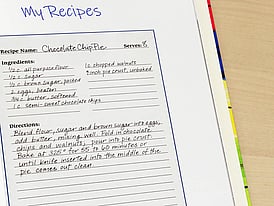 My Recipes
Recipe Name: Chocolate Chip Pie Serves: 8
Ingredients:
½ c. all purpose flour 1 c. chopped walnuts
½ c. sugar 9 inch pie crust, unbaked
½ c. brown sugar, packed
2 eggs, beaten
¾ c. butter, softened
1 c. semi-sweet chocolate chips
Directions:
Blend flour, sugar and brown sugar into eggs,
add butter, mixing well. Fold in chocolate
chips and walnuts, pour into pie crust
Bake at 325° for 55 to 60 minutes or
until knife inserted into the middle of the
pie comes out clean.